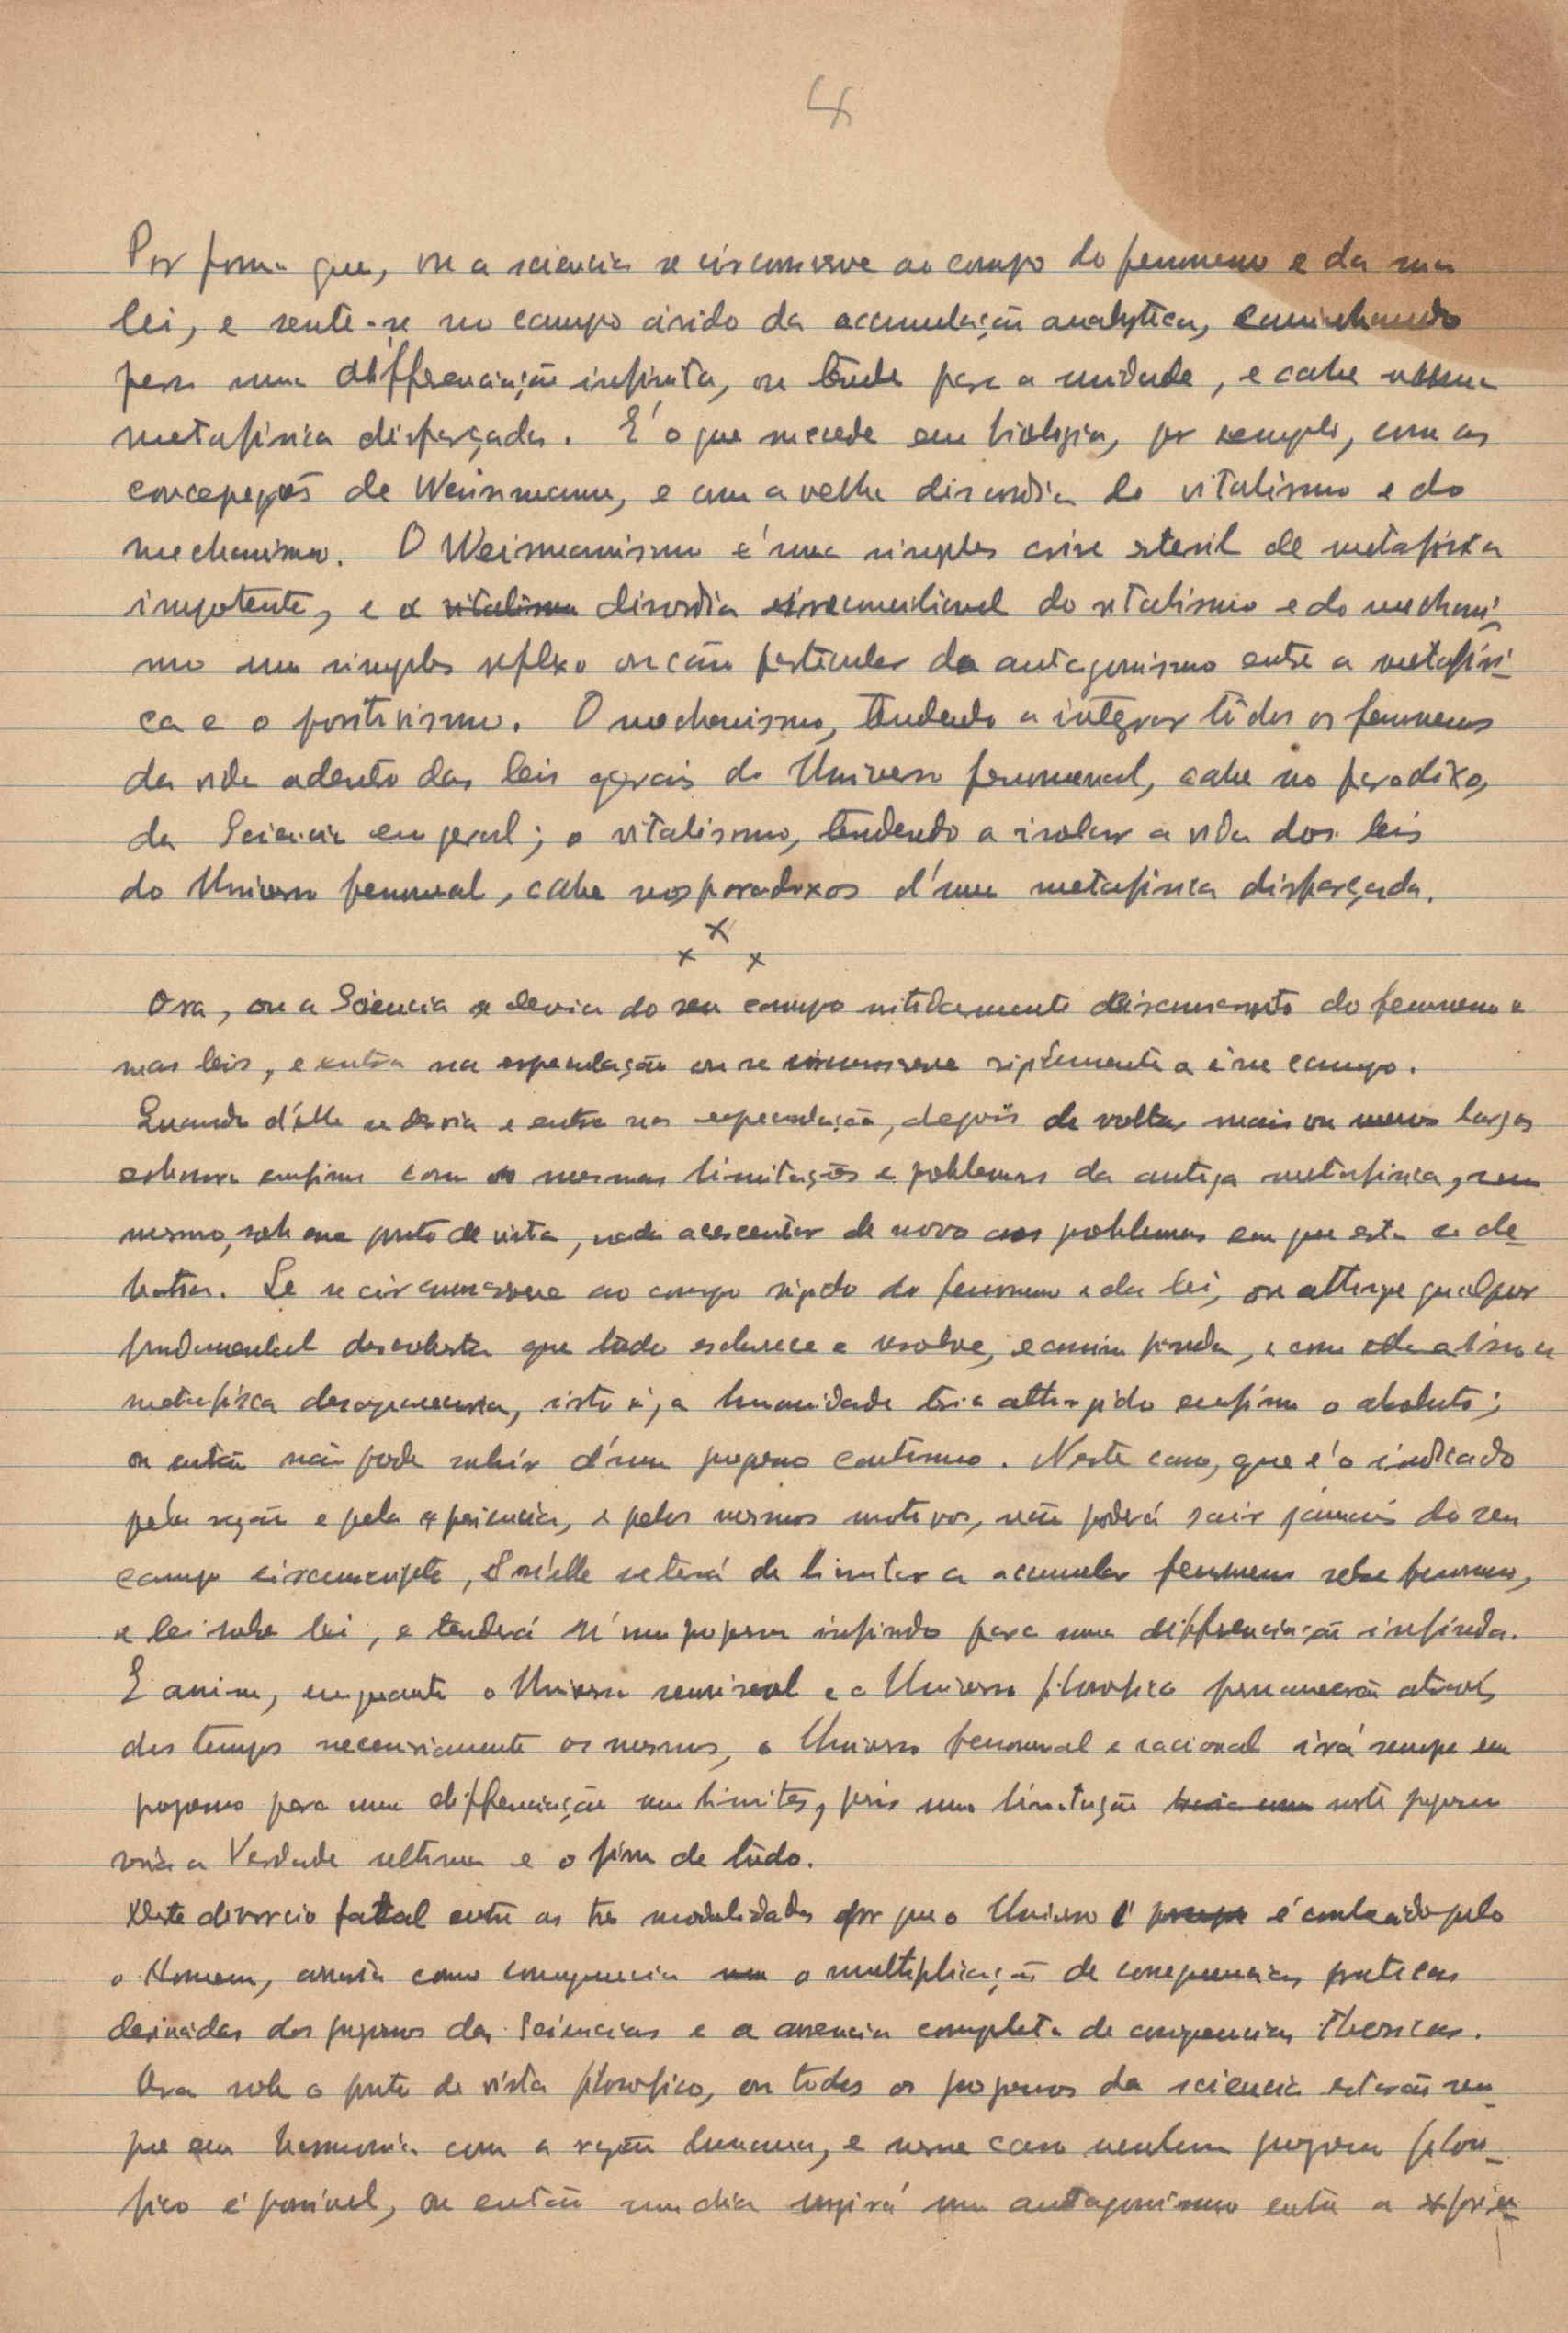 4
Por forma que, ou a sciencia se circunscreve ao campo do fenomeno e da sua
lei, e sente-se no campo árido da acumulação analytica, caminhando
para uma differenciação infinita, ou tende para a unidade, e cahe n'uma
metafisica disfarçada. E' o que sucede em biologia, por exemplo, com as
concepções de Weismann, e com a velha discordia do vitalismo e do
mechanismo. O Weismanismo é uma simples crise esteril de metafisica
impotente, e a vitalismo discordia irreconciliavel do vitalismo e do mechanis-
mo um simples reflexo ou caso particular do antagonismo entre a metafisi-
ca e o positivismo. O mechanismo, tendendo a integrar todos os fenomenos
da vida adentro das leis gerais do Universo fenomenal, cahe no paradoxo,
da Sciencia em geral; o vitalismo, tendendo a isolar a vida das leis
do Universo fenomenal, cahe nos paradoxos d'uma metafisica disfarçada.
x x x
Ora, ou a Sciencia se desvia do seu campo nitidamente circunscripto do fenomeno e
suas leis, e entra na especulação ou se circunscreve rigidamente a esse campo.
Quando d'elle se desvia e entra na especulação, depois de voltas mais ou menos largas
esbarra emfim com as mesmas limitações e problemas da antiga metafisica, sem
mesmo, sob esse ponto de vista, nada acrescentar de novo aos problemas em que esta se de-
batia. Se se circunscreve ao campo rigido do fenomeno e da lei, ou attinge qualquer
fundamental descoberta que tudo esclarece e resolve, e assim finda, e com ella a
metafisica desapareceria, isto é, a humanidade teria attingido emfim o absoluto;
ou então não pode sahir d'um progresso continuo. Neste caso, que é o indicado
pela razão e pela experiencia, e pelos mesmos motivos, não poderá sair jámais do seu
campo circunscripto, e n'elle se terá de limitar a acumular fenomeno sobre fenomeno,
e lei sobre lei, e tenderá n'um progresso infindo para uma differenciação infinda.
E assim, emquanto o Universo sensivel e o Universo filosofico permanecerão atravez
dos tempos necessariamente os mesmos, o Universo fenomenal e racional irá sempre em
progresso para uma differenciação sem limites, pois uma limitação neste progresso
seria a Verdade ultima e o fim de tudo.
Deste divorcio fatal entre as tres modalidades por que o Universo é é conhecido pelo
o Homem, como consequencia a multiplicação de consequencias praticas
derivadas dos progressos das Sciencias e a ausencia completa de consequencias theoricas.
Ora sob o ponto de vista filosofico, ou todos os progressos da sciencia estarão sem-
pre em harmonia com a razão humana, e nesse caso nenhum progresso filoso-
fico é possivel, ou então um dia surgirá um antagonismo entre a experien-